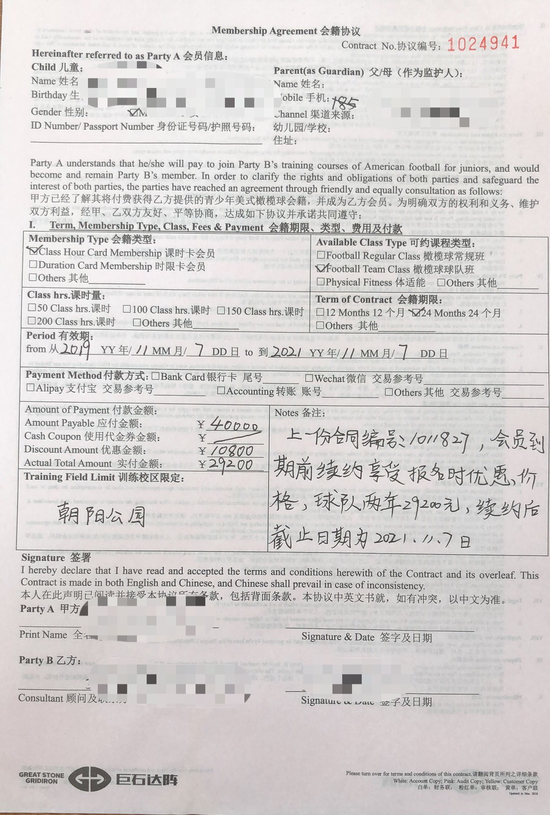 Membership Agreement 会籍协议
Contract No.协议编号: 1024941
Hereinafter referred to as Party A 会员信息:
Child 儿童:
Parent(as Guardian) 父/母 (作为监护人):
Name 姓名
Name 姓名:
Birthday 生
Mobile 手机: 185
Gender 性别:
Channel 渠道来源:
ID Number/ Passport Number 身份证号码/护照号码:
幼儿园/学校:
住址:
Party A understands that he/she will pay to join Party B's training courses of American football for juniors, and would
become and remain Party B's member. In order to clarify the rights and obligations of both parties and safeguard the
interest of both parties, the parties have reached an agreement through friendly and equally consultation as follows:
甲方已经了解其将付费获得乙方提供的青少年美式橄榄球会籍,并成为乙方会员。为明确双方的权利和义务、维护
双方利益,经甲、乙双方友好、平等协商,达成如下协议并承诺共同遵守:
I. Term, Membership Type, Class, Fees & Payment 会籍期限、类型、费用及付款
Membership Type 会籍类型:
☑Class Hour Card Membership 课时卡会员
□Duration Card Membership 时限卡会员
□Others 其他
Available Class Type 可约课程类型:
□Football Regular Class 橄榄球常规班
☑Football Team Class 橄榄球球队班
□Physical Fitness 体适能 □Others 其他
Class hrs.课时量:
□50 Class hrs.课时 □100 Class hrs.课时 □150 Class hrs.课时
□200 Class hrs.课时 □Others 其他
Term of Contract 会籍期限:
□12 Months 12 个月 ☑24 Months 24 个月
Period 有效期:
from 从 2019 YY 年/ 11 MM 月/ 7 DD 日 to 到 2021 YY 年/ 11 MM 月/ 7 DD 日
Payment Method 付款方式: □Bank Card 银行卡 尾号 □Wechat 微信 交易参考号
□Alipay 支付宝 交易参考号 □Accounting 转账 账号 □Others 其他 交易参考号
Amount of Payment 付款金额:
Amount Payable 应付金额: ¥ 40000
Cash Coupon 使用代金券金额: ¥
Discount Amount 优惠金额: ¥ 10800
Actual Total Amount 实付金额: ¥ 29200
Training Field Limit 训练校区限定:
朝阳公园
Notes 备注:
上一份合同编号:1011827,会员到
期前续约享受报名时优惠价
格,球队两年29200元,续约后
截止日期为2021.11.7日
Signature 签署
I hereby declare that I have read and accepted the terms and conditions herewith of the Contract and its overleaf. This
Contract is made in both English and Chinese, and Chinese shall prevail in case of inconsistency.
本人在此声明已阅读并接受本协议所有条款,包括背面条款。本协议中英文书就,如有冲突,以中文为准。
Party A 甲方
Print Name 全
Signature & Date 签字及日期
Party B 乙方:
Consultant 顾问及
Signature & Date 签字及日期
GREAT STONE
GRIDIRON
巨石达阵
Please turn over for terms and conditions of this contract.请翻阅背页所列之详细条款
White: Account Copy; Pink: Audit Copy; Yellow: Customer Copy
白单:财务联; 粉红单:审核联; 黄单:客户联